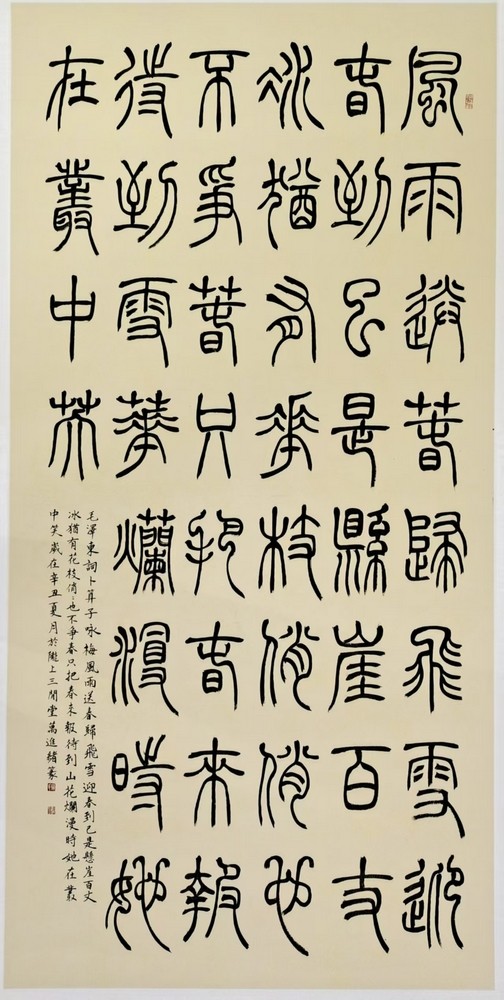 風雨送春歸飛雪迎
春到已是縣崖百丈
冰猶有華枝俏俏也
不爭春只把春來報
待到雪華爛漫時她
在叢中笑
毛澤東詞卜算子咏梅風雨送春歸飛雪迎春到已是懸崖百丈
冰猶有花枝俏〻也不爭春只把春來報待到山花爛漫時她在叢
中笑歲在辛丑夏月於隴上三閒堂萬進緒篆